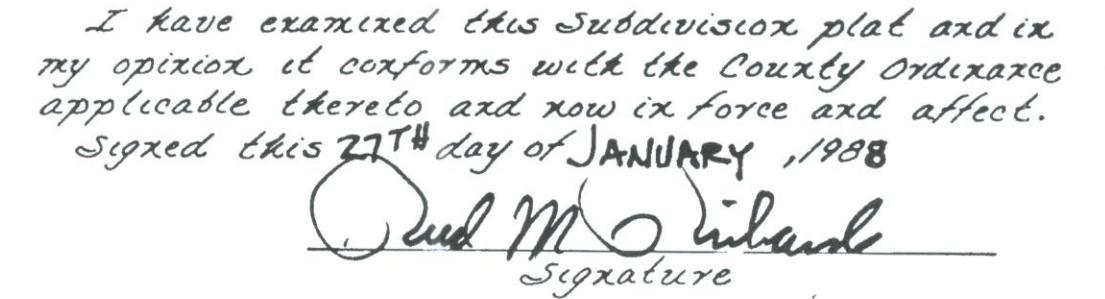 I have examined this Subdivision plat and in
my opinion it conforms with the County Ordinance
applicable thereto and now in force and affect.
Signed this 27TH day of JANUARY , 1988
M
Signature